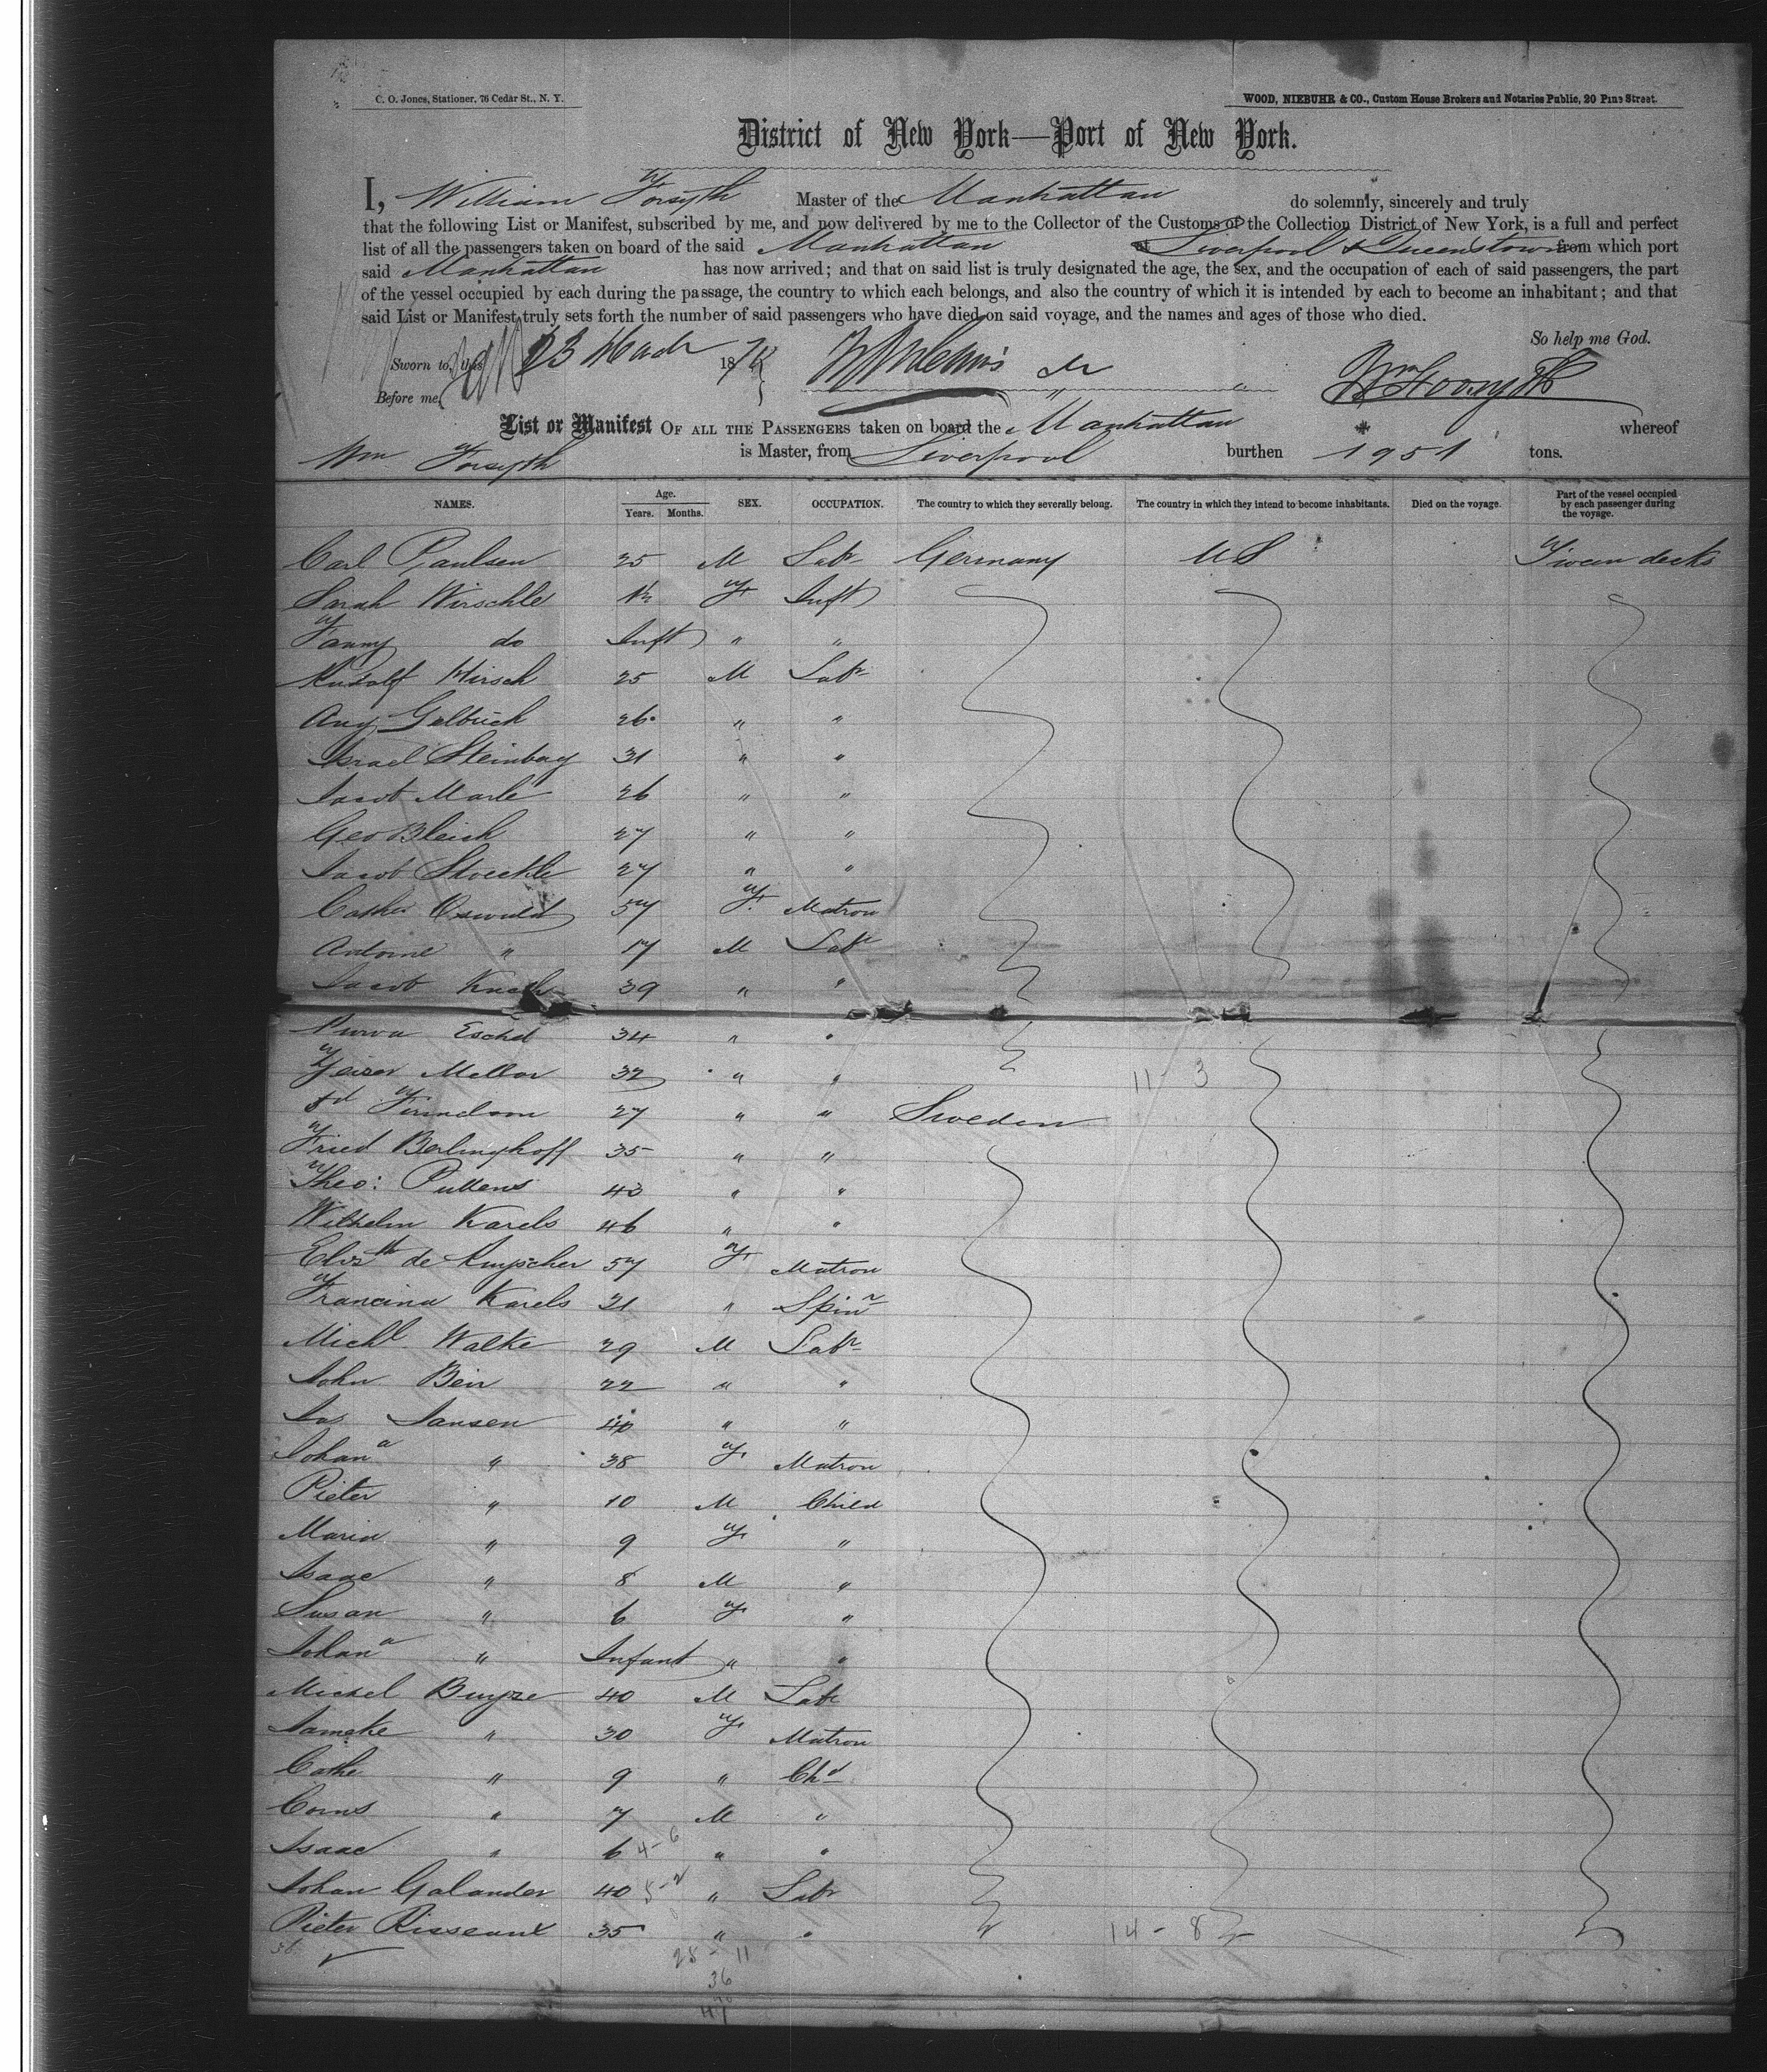 C. O. Jones, Stationer, 76 Cedar St., N. Y.
WOOD, NIEBUHR & CO., Custom House Brokers and Notaries Public, 20 Pine Street.
District of New York—Port of New York.
I, William Forsyth Master of the Manhattan do solemnly, sincerely and truly
that the following List or Manifest, subscribed by me, and now delivered by me to the Collector of the Customs of the Collection District of New York, is a full and perfect
list of all the passengers taken on board of the said Manhattan at Liverpool & Queenstown from which port
said Manhattan has now arrived; and that on said list is truly designated the age, the sex, and the occupation of each of said passengers, the part
of the vessel occupied by each during the passage, the country to which each belongs, and also the country of which it is intended by each to become an inhabitant; and that
said List or Manifest truly sets forth the number of said passengers who have died on said voyage, and the names and ages of those who died.
So help me God.
Sworn to, this 23 March 187
Wm Forsyth
Before me,
List or Manifest OF ALL THE PASSENGERS taken on board the Manhattan whereof
Wm Forsyth is Master, from Liverpool burthen 1951 tons.
NAMES. Age. Years. Months. SEX. OCCUPATION. The country to which they severally belong. The country in which they intend to become inhabitants. Died on the voyage. Part of the vessel occupied by each passenger during the voyage.
Carl Paulsen 25 M Labr Germany US Tween decks
Sarah Wirschle F Inft
Fanny do Inft " "
Rudolf Hirsch 25 M Labr
Aug Gelbrich 26 " "
Israel Steinberg 31 " "
Jacob Marle 26 " "
Geo Bleich 27 " "
Jacob Stoeckle 27 " "
Cathe Oswald 57 F Matron
Antoine " 17 M Labr
Jacob 39 " "
Eschd 34 " "
Mellor 32 " "
27 " " Sweden
Fried Berlinghoff 35 " "
Theo: Pullens 43 " "
Wilhelm Karels 46 " "
Elizth de Ruyscher 57 F Matron
Francina Karels 21 " Spinr
Michl Walke 29 M Labr
John Beir 22 " "
Jas Jansen 40 " "
Johana " 38 F Matron
Pieter " 10 M Child
Maria " 9 F "
Isaac " 8 M "
Susan " 6 F "
Johana " Infant " "
Michel Buyze 40 M Labr
Jameke " 30 F Matron
Cathe " 9 " Chd
Corns " 7 M "
Isaac " 6 4-6 " "
Johan Galander 40 5-2 " Labr
Pieter Risseaux 35 " " 14-8
28-11
36